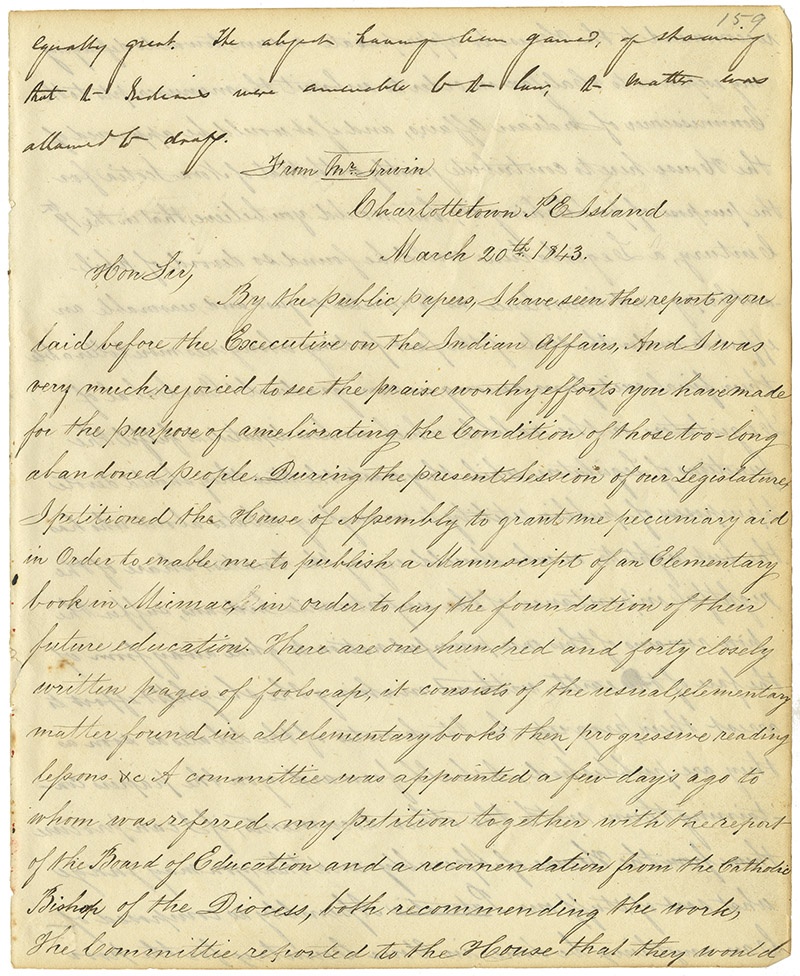 159
equally great. The object having been gained, of showing
that the Indians were amenable to the law, the matter was
allowed to drop.
From Mr. Irwin
Charlottetown P E Island
March 20th. 1843.
Hon Sir,
By the public papers, I have seen the report you
laid before the Excecutive on the Indian Affairs, And I was
very much rejoiced to see the praise worthy efforts you have made
for the purpose of ameliorating the Condition of those too-long
abandoned people. During the present Session of our Legislature,
I petitioned the House of Assembly to grant me pecuniary aid
in Order to enable me to publish a Manuscript of an Elementary
book in Micmac, in order to lay the foundation of their
future education. There are one hundred and forty closely
written pages of foolscap, it consists of the usual, elementary
matter found in all elementary book's then progressive reading
lessons. &c A committie was appointed a few day's ago to
whom was referred my petition together with the report
of the Board of Education and a recomendation from the Catholic
Bishop of the Diocess, both recommending the work,
The Committie reported to the House that they would